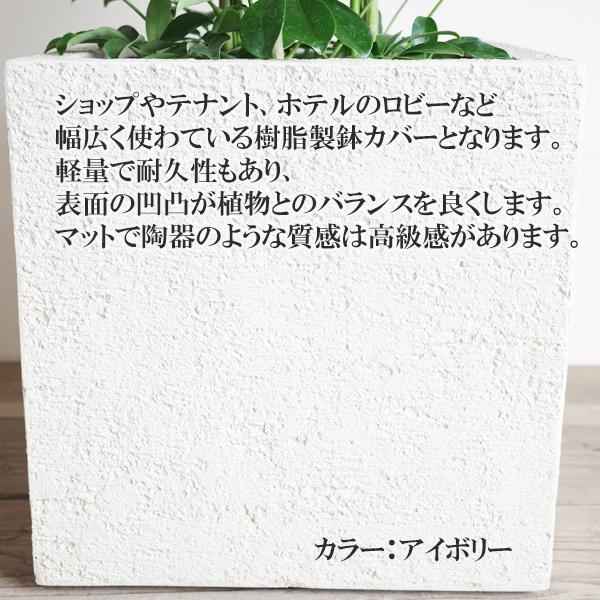 ショップやテナント、ホテルのロビーなど
幅広く使わている樹脂製鉢カバーとなります。
軽量で耐久性もあり、
表面の凹凸が植物とのバランスを良くします。
マットで陶器のような質感は高級感があります。
カラー：アイボリー